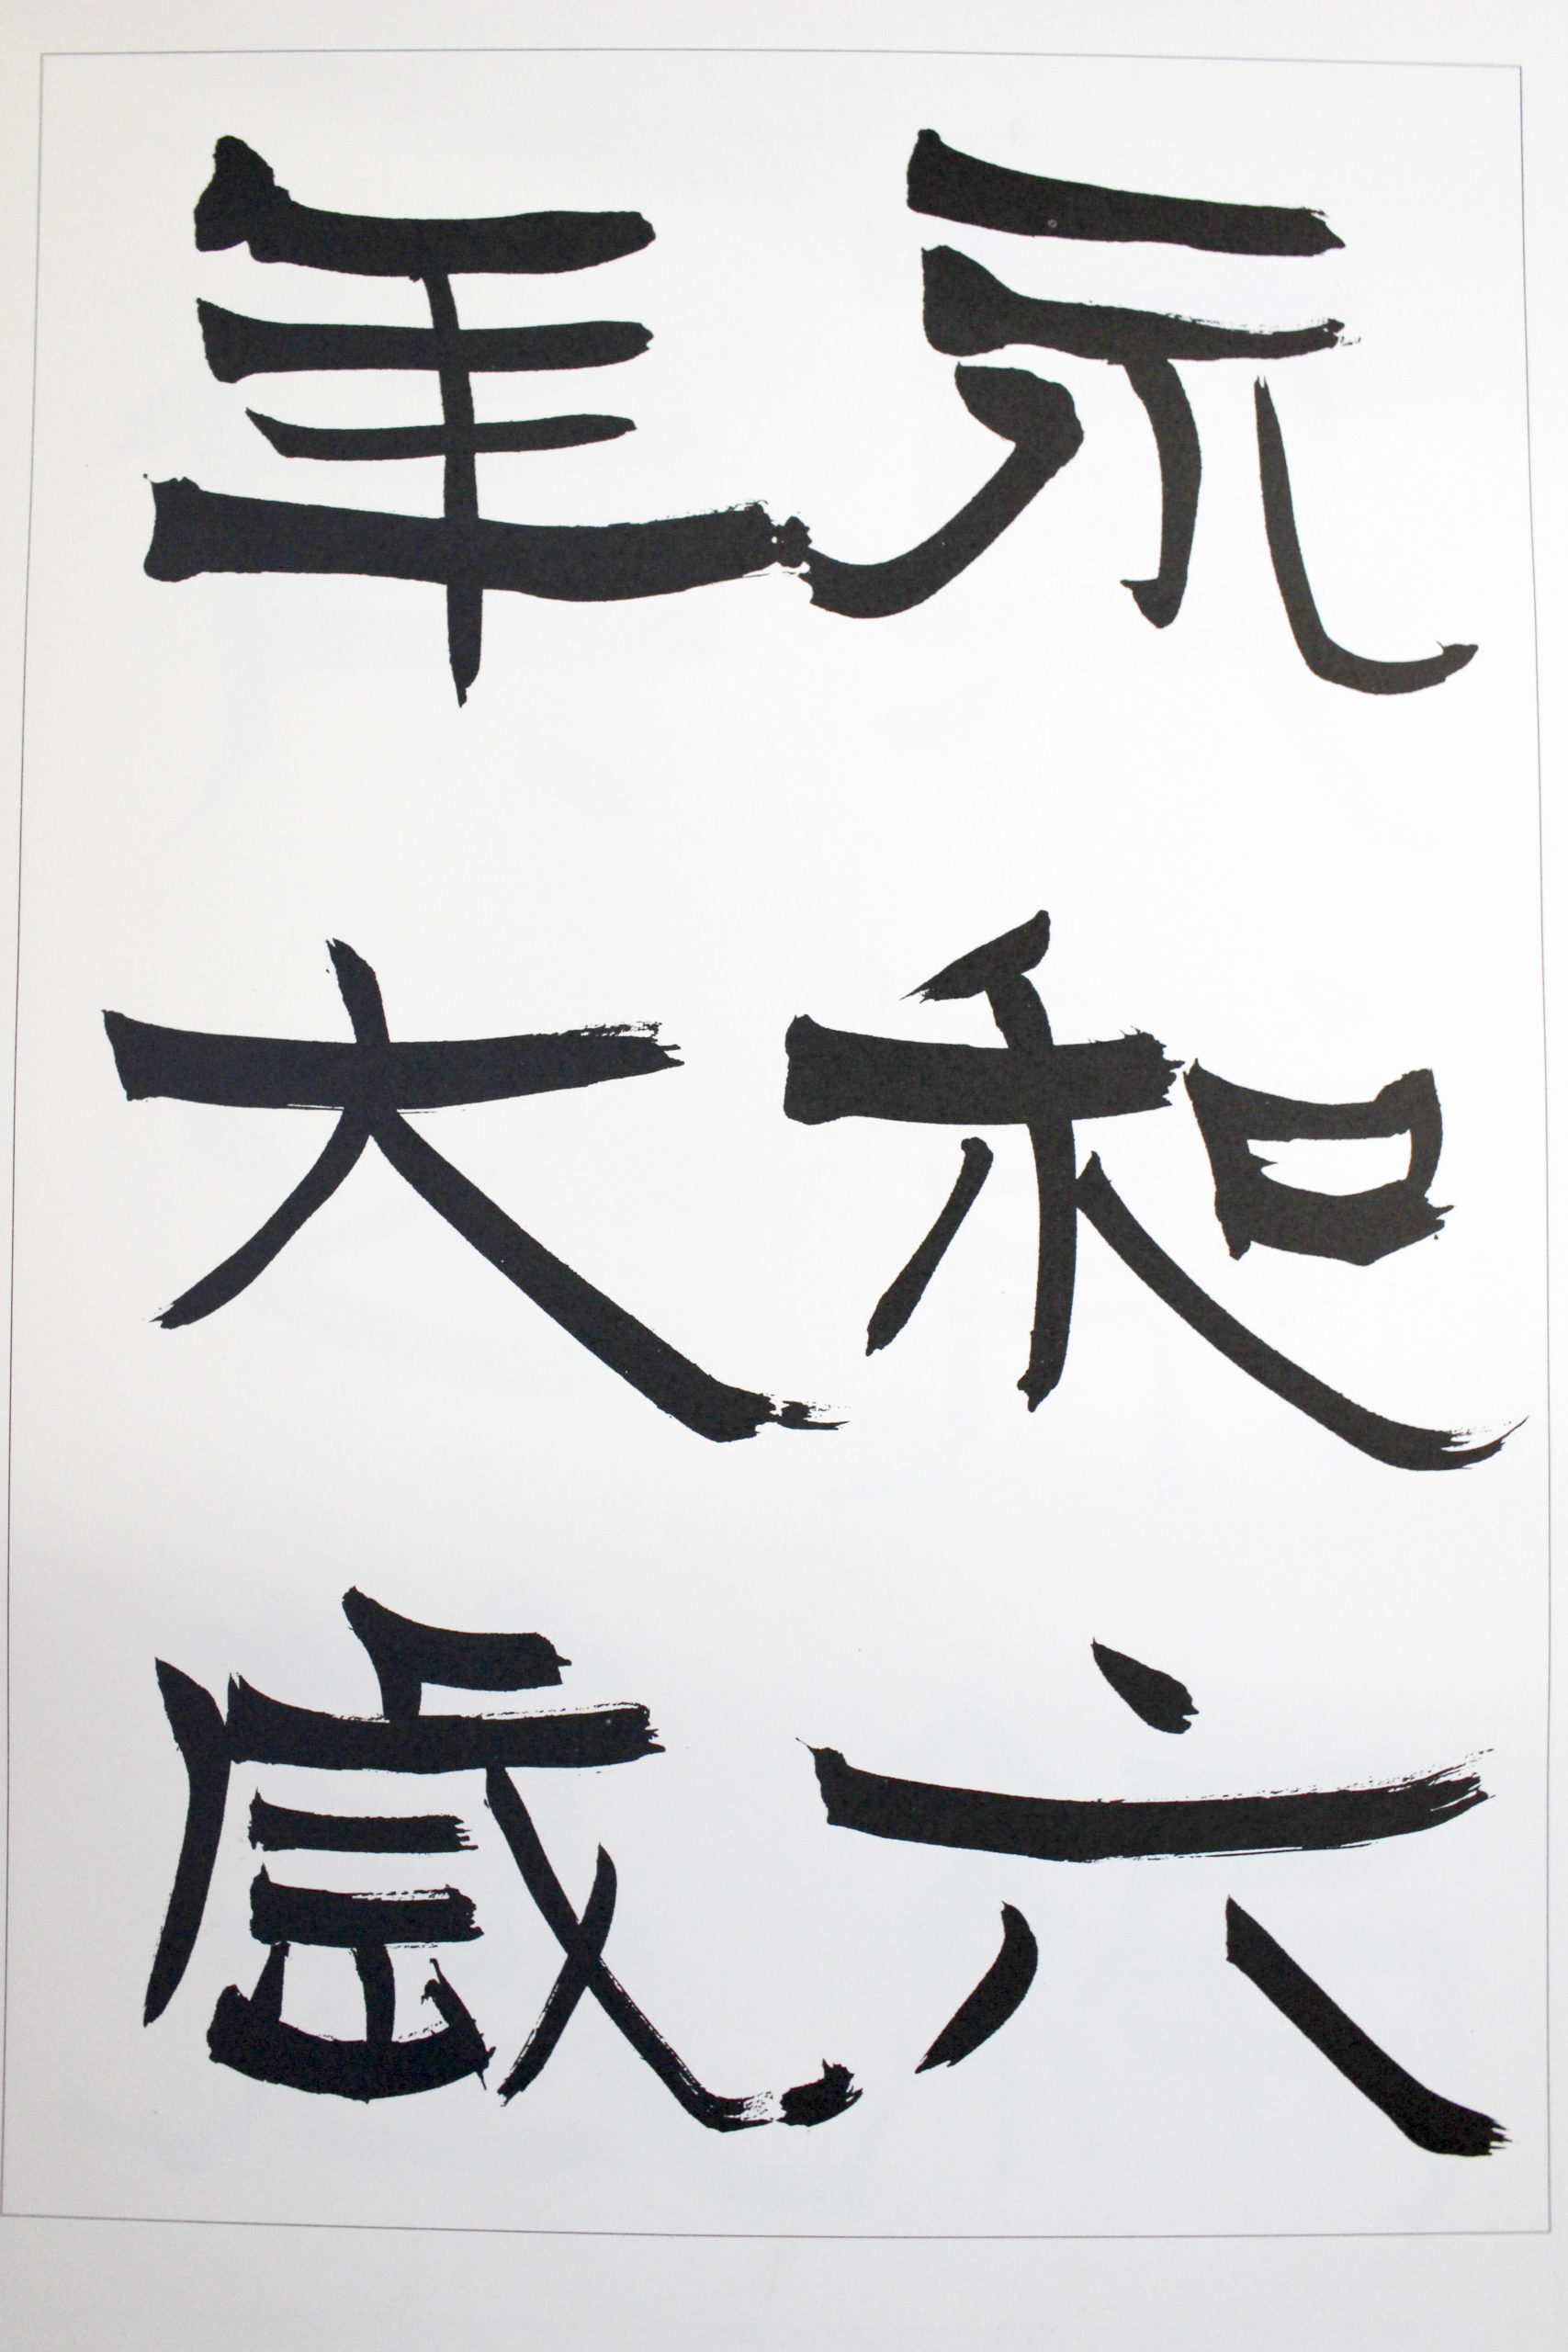 元和六
年大歳